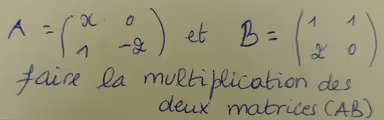 A = (x 0 et B = (1 1
1 -2) 2 0)
faire la multiplication des
deux matrices (AB)